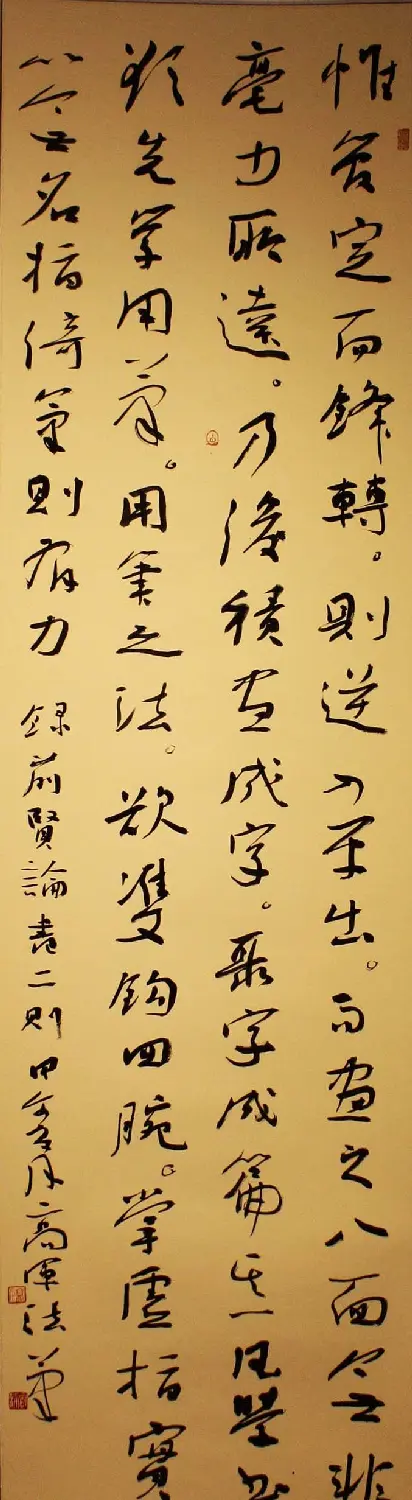 惟管定而鋒轉。則逆入平出。而畫之八面無非
毫力所達。乃後積畫成字。聚字成篇 其一 凡學書
須先學用筆。用筆之法。欲雙鈎回腕。掌虛指實
以無名指倚筆則有力 錄前賢論書二則 甲午夏月高軍法筆